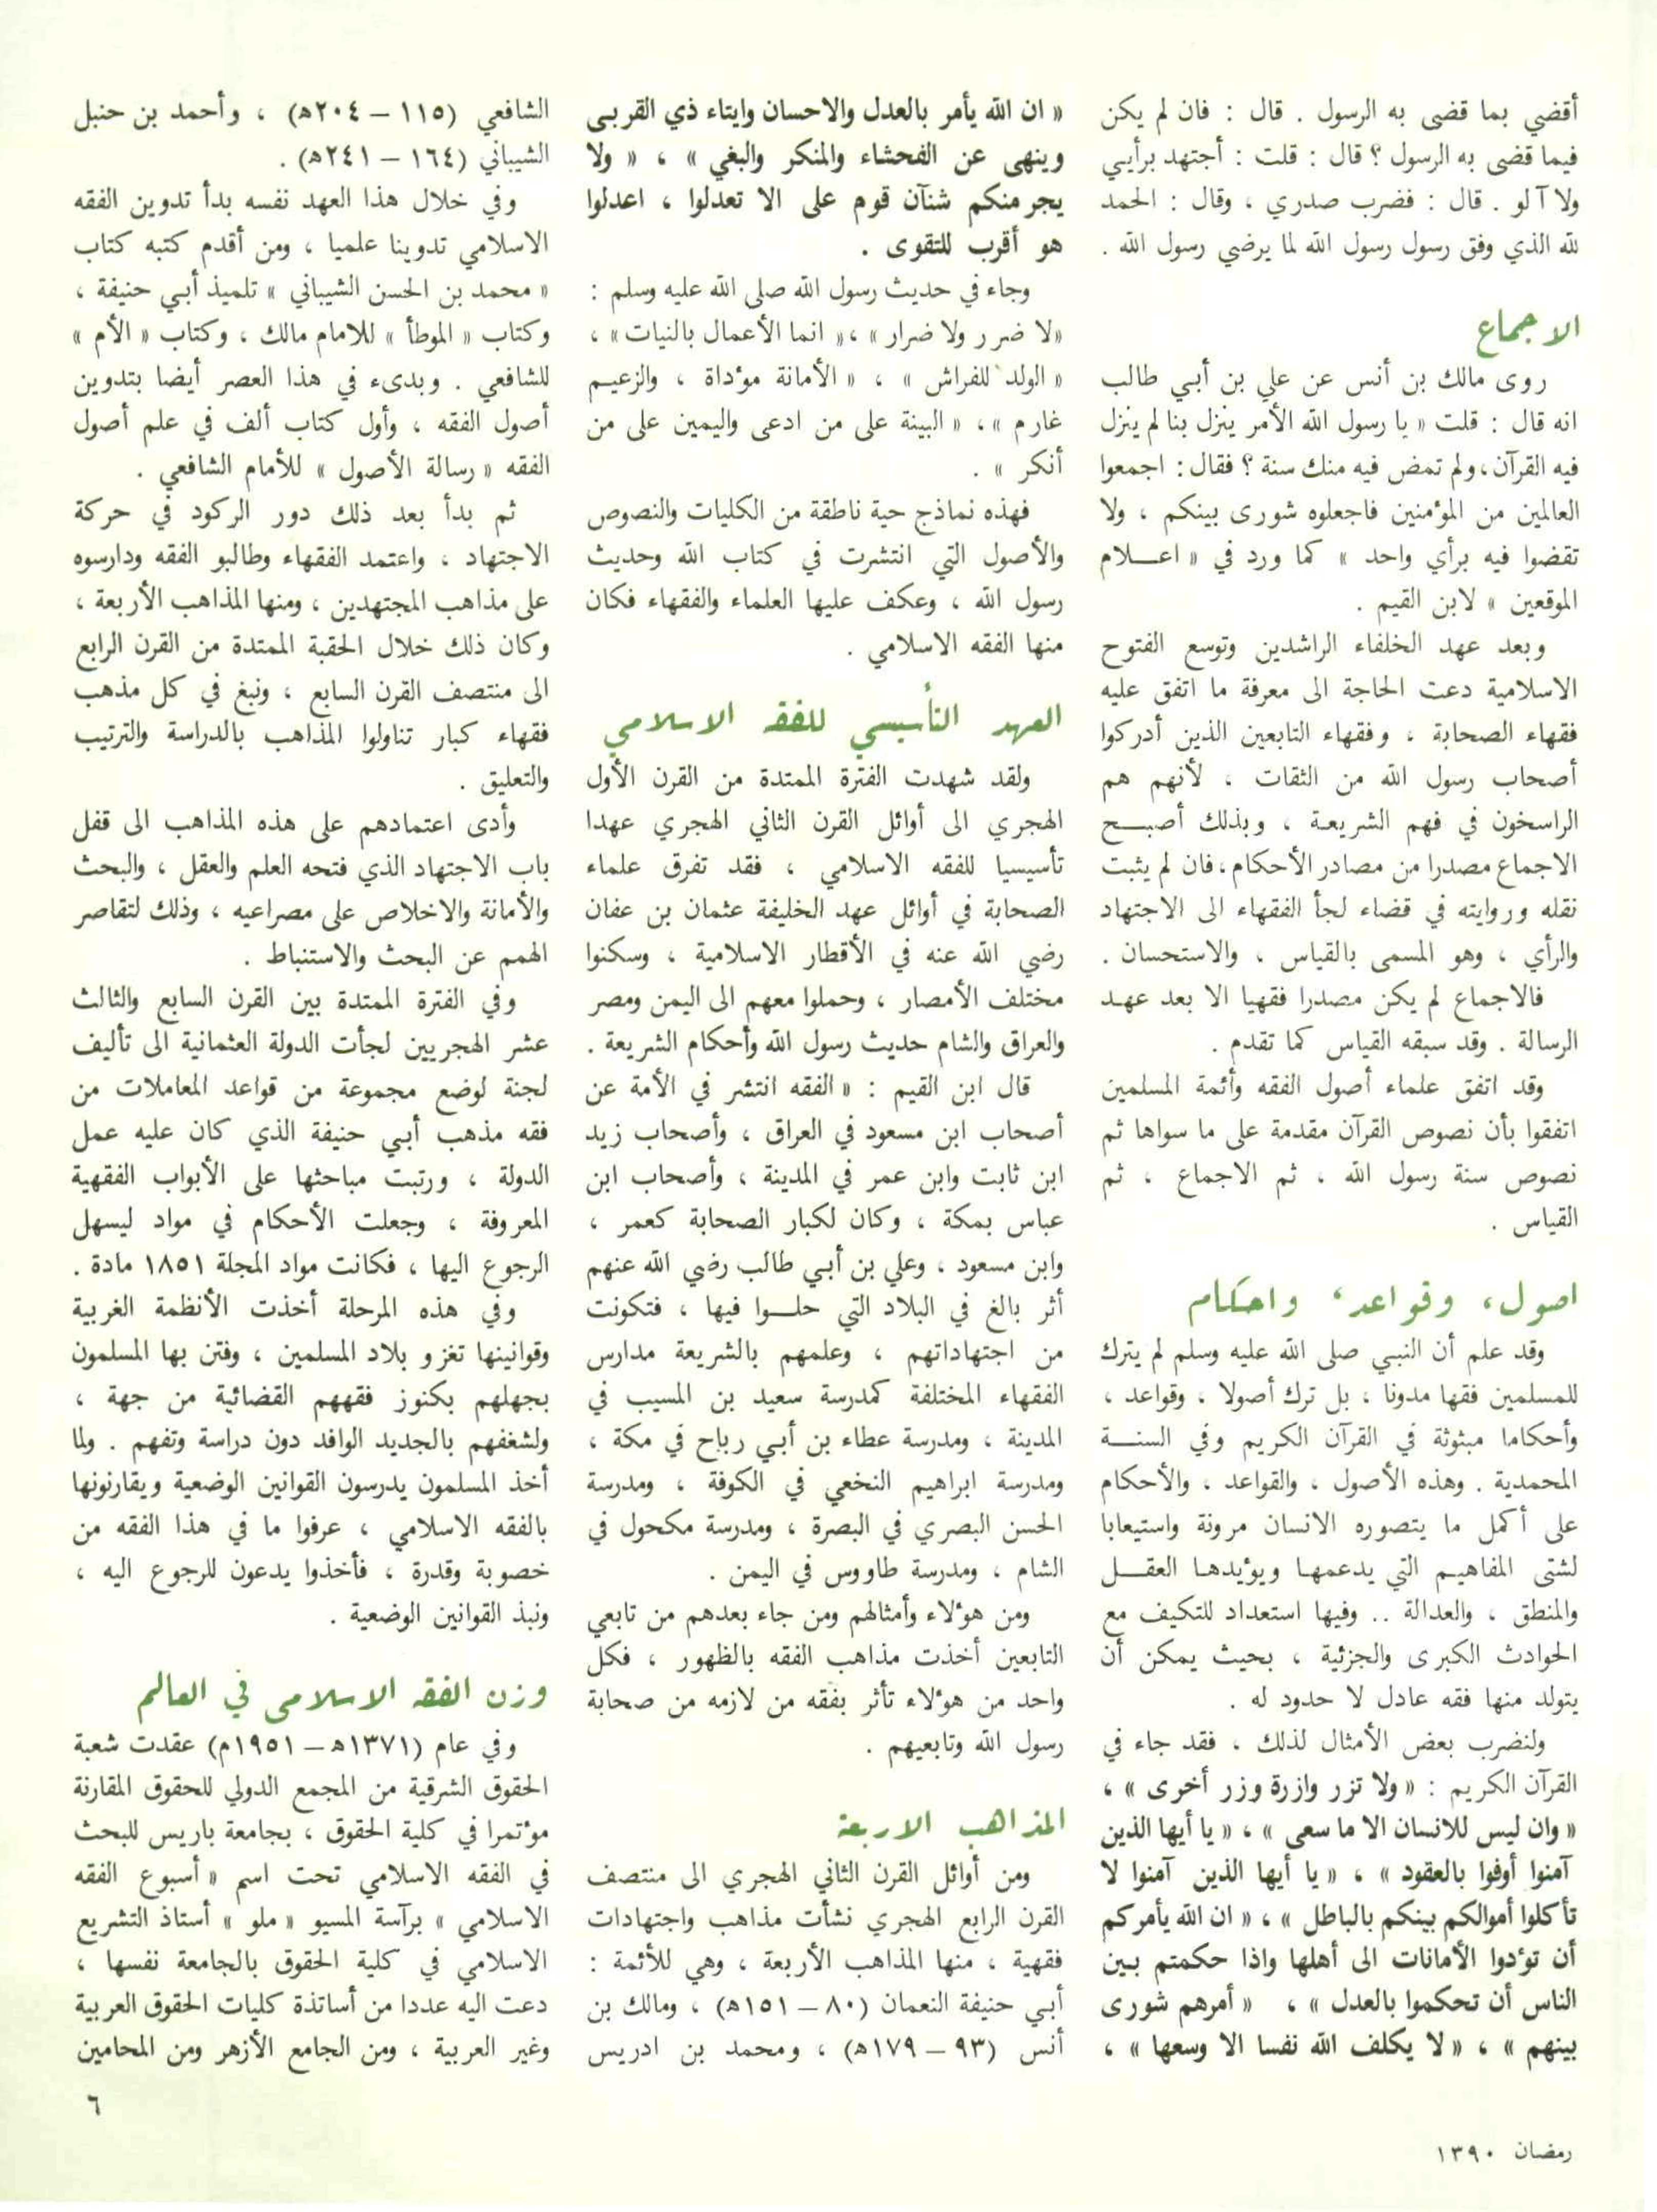 أقضي بما قضى به الرسول . قال : فان لم يكن
فيما قضى به الرسول ؟ قال : قلت : أجتهد برأيي
ولا آلو . قال : فضرب صدري ، وقال : الحمد
لله الذي وفق رسول رسول الله لما يرضي رسول الله .
الاجماع
روى مالك بن أنس عن علي بن أبي طالب
انه قال : قلت « يا رسول الله الأمر ينزل بنا لم ينزل
فيه القرآن ، ولم تمض فيه منك سنة ؟ فقال : اجمعوا
العالمين من المؤمنين فاجعلوه شورى بينكم ، ولا
تقضوا فيه برأي واحد » كما ورد في « اعـــلام
الموقعين » لابن القيم .
وبعد عهد الخلفاء الراشدين وتوسع الفتوح
الاسلامية دعت الحاجة الى معرفة ما اتفق عليه
فقهاء الصحابة ، وفقهاء التابعين الذين أدركوا
أصحاب رسول الله من الثقات ، لأنهم هم
الراسخون في فهم الشريعة ، وبذلك أصبـــح
الاجماع مصدرا من مصادر الأحكام ، فان لم يثبت
نقله وروايته في قضاء لجأ الفقهاء الى الاجتهاد
والرأي ، وهو المسمى بالقياس ، والاستحسان .
فالاجماع لم يكن مصدرا فقهيا الا بعد عهـد
الرسالة . وقد سبقه القياس كما تقدم .
وقد اتفق علماء أصول الفقه وأئمة المسلمين
اتفقوا بأن نصوص القرآن مقدمة على ما سواها ثم
نصوص سنة رسول الله ، ثم الاجماع ، ثم
القياس .
اصول ، وقواعد ، واحكام
وقد علم أن النبي صلى الله عليه وسلم لم يترك
للمسلمين فقها مدونا ، بل ترك أصولا ، وقواعد ،
وأحكاما مبثوثة في القرآن الكريم وفي السنــــة
المحمدية . وهذه الأصول ، والقواعد ، والأحكام
على أكمل ما يتصوره الانسان مرونة واستيعابا
لشتى المفاهيم التي يدعمها ويؤيدها العقـــل
والمنطق ، والعدالة .. وفيها استعداد للتكيف مع
الحوادث الكبرى والجزئية ، بحيث يمكن أن
يتولد منها فقه عادل لا حدود له .
ولنضرب بعض الأمثال لذلك ، فقد جاء في
القرآن الكريم : « ولا تزر وازرة وزر أخرى » ،
« وان ليس للانسان الا ما سعى » ، « يا أيها الذين
آمنوا أوفوا بالعقود » ، « يا أيها الذين آمنوا لا
تأكلوا أموالكم بينكم بالباطل » ، « ان الله يأمركم
أن تؤدوا الأمانات الى أهلها واذا حكمتم بـين
الناس أن تحكموا بالعدل » ، « أمرهم شورى
بينهم » ، « لا يكلف الله نفسا الا وسعها » ،
« ان الله يأمر بالعدل والاحسان وايتاء ذي القربى
وينهى عن الفحشاء والمنكر والبغي » ، « ولا
يجرمنكم شنآن قوم على الا تعدلوا ، اعدلوا
هو أقرب للتقوى .
وجاء في حديث رسول الله صلى الله عليه وسلم :
«لا ضرر ولا ضرار » ،« انما الأعمال بالنيات» ،
« الولد للفراش » ، « الأمانة مؤداة ، والزعيـم
غارم » ، « البينة على من ادعى واليمين على من
أنكر » .
فهذه نماذج حية ناطقة من الكليات والنصوص
والأصول التي انتشرت في كتاب الله وحديث
رسول الله ، وعكف عليها العلماء والفقهاء فكان
منها الفقه الاسلامي .
العهد التأسيسي للفقه الاسلامي
ولقد شهدت الفترة الممتدة من القرن الأول
الهجري الى أوائل القرن الثاني الهجري عهدا
تأسيسيا للفقه الاسلامي ، فقد تفرق علماء
الصحابة في أوائل عهد الخليفة عثمان بن عفان
رضي الله عنه في الأقطار الاسلامية ، وسكنوا
مختلف الأمصار ، وحملوا معهم الى اليمن ومصر
والعراق والشام حديث رسول الله وأحكام الشريعة .
قال ابن القيم : « الفقه انتشر في الأمة عن
أصحاب ابن مسعود في العراق ، وأصحاب زيد
ابن ثابت وابن عمر في المدينة ، وأصحاب ابن
عباس بمكة ، وكان لكبار الصحابة كعمر ،
وابن مسعود ، وعلي بن أبي طالب رضي الله عنهم
أثر بالغ في البلاد التي حلــوا فيها ، فتكونت
من اجتهاداتهم ، وعلمهم بالشريعة مدارس
الفقهاء المختلفة كمدرسة سعيد بن المسيب في
المدينة ، ومدرسة عطاء بن أبي رباح في مكة ،
ومدرسة ابراهيم النخعي في الكوفة ، ومدرسة
الحسن البصري في البصرة ، ومدرسة مكحول في
الشام ، ومدرسة طاووس في اليمن .
ومن هؤلاء وأمثالهم ومن جاء بعدهم من تابعي
التابعين أخذت مذاهب الفقه بالظهور ، فكل
واحد من هؤلاء تأثر بفقه من لازمه من صحابة
رسول الله وتابعيهم .
المذاهب الاربعة
ومن أوائل القرن الثاني الهجري الى منتصف
القرن الرابع الهجري نشأت مذاهب واجتهادات
فقهية ، منها المذاهب الأربعة ، وهي للأئمة :
أبي حنيفة النعمان (٨٠ – ١٥١هـ) ، ومالك بن
أنس (٩٣ – ١٧٩هـ) ، ومحمد بن ادريس
الشافعي (١١٥ – ٢٠٤هـ) ، وأحمد بن حنبل
الشيباني (١٦٤ – ٢٤١هـ) .
وفي خلال هذا العهد نفسه بدأ تدوين الفقه
الاسلامي تدوينا علميا ، ومن أقدم كتبه كتاب
« محمد بن الحسن الشيباني » تلميذ أبي حنيفة ،
وكتاب « الموطأ » للامام مالك ، وكتاب « الأم »
للشافعي . وبدىء في هذا العصر أيضا بتدوين
أصول الفقه ، وأول كتاب ألف في علم أصول
الفقه « رسالة الأصول » للأمام الشافعي .
ثم بدأ بعد ذلك دور الركود في حركة
الاجتهاد ، واعتمد الفقهاء وطالبو الفقه ودارسوه
على مذاهب المجتهدين ، ومنها المذاهب الأربعة ،
وكان ذلك خلال الحقبة الممتدة من القرن الرابع
الى منتصف القرن السابع ، ونبغ في كل مذهب
فقهاء كبار تناولوا المذاهب بالدراسة والترتيب
والتعليق .
وأدى اعتمادهم على هذه المذاهب الى قفل
باب الاجتهاد الذي فتحه العلم والعقل ، والبحث
والأمانة والاخلاص على مصراعيه ، وذلك لتقاصر
الهمم عن البحث والاستنباط .
وفي الفترة الممتدة بين القرن السابع والثالث
عشر الهجريين لجأت الدولة العثمانية الى تأليف
لجنة لوضع مجموعة من قواعد المعاملات من
فقه مذهب أبي حنيفة الذي كان عليه عمل
الدولة ، ورتبت مباحثها على الأبواب الفقهية
المعروفة ، وجعلت الأحكام في مواد ليسهل
الرجوع اليها ، فكانت مواد المجلة ١٨٥١ مادة .
وفي هذه المرحلة أخذت الأنظمة الغربية
وقوانينها تغزو بلاد المسلمين ، وفتن بها المسلمون
بجهلهم بكنوز فقههم القضائية من جهة ،
ولشغفهم بالجديد الوافد دون دراسة وتفهم . ولما
أخذ المسلمون يدرسون القوانين الوضعية ويقارنونها
بالفقه الاسلامي ، عرفوا ما في هذا الفقه من
خصوبة وقدرة ، فأخذوا يدعون للرجوع اليه ،
ونبذ القوانين الوضعية .
وزن الفقه الاسلامي في العالم
وفي عام (١٣٧١هـ – ١٩٥١م) عقدت شعبة
الحقوق الشرقية من المجمع الدولي للحقوق المقارنة
مؤتمرا في كلية الحقوق ، بجامعة باريس للبحث
في الفقه الاسلامي تحت اسم « أسبوع الفقه
الاسلامي » برآسة المسيو « ملو » أستاذ التشريع
الاسلامي في كلية الحقوق بالجامعة نفسها ،
دعت اليه عددا من أساتذة كليات الحقوق العربية
وغير العربية ، ومن الجامع الأزهر ومن المحامين
٦
رمضان ١٣٩٠